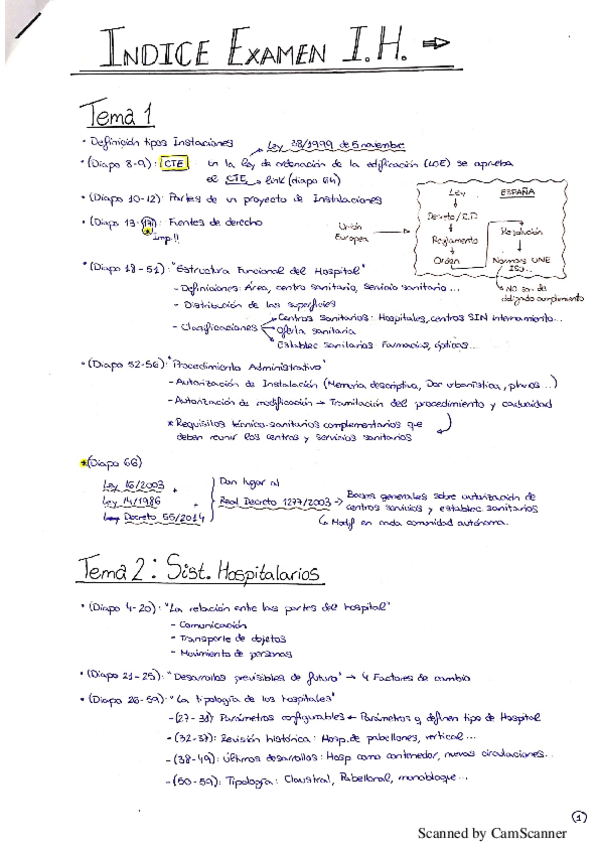 INDICE EXAMEN I.H. ⇒
Tema 1
• Definición tipos Instalaciones
Ley 38/1999 de 5 noviembre
• (Diapo 8-9): CTE en la ley de ordenación de la edificación (LOE) se aprueba
el CTE → link (diapo 64)
• (Diapo 10-12): Partes de un proyecto de Instalaciones
• (Diapo 13-17): Fuentes de derecho
* imp!!
Unión
Europea
Ley
Decreto/R.D
Reglamento
Orden
ESPAÑA
Resolución
Normas UNE
ISO...
NO son de
obligado cumplimiento
• (Diapo 18-51): "Estructura Funcional del Hospital"
- Definiciones: Área, centro sanitario, Servicio sanitario...
- Distribución de las superficies
- Clasificaciones
Centros sanitarios: Hospitales, centros SIN internamiento...
Oferta sanitaria
Establec sanitarios Farmacias, ópticas...
• (Diapo 52-56): "Procedimiento Administrativo"
- Autorización de Instalación (Memoria descriptiva, Doc urbanística, planos...)
- Autorización de modificación → Tramitación del procedimiento y caducidad
* Requisitos técnico-sanitarios complementarios que
deben reunir los centros y servicios sanitarios
* (Diapo 66)
Ley 16/2003
Ley 14/1986
Decreto 55/2014
Dan lugar al
Real Decreto 1277/2003 → Bases generales sobre autorización de
centros servicios y establec sanitarios
↳ Modif en cada comunidad autónoma.
Tema 2: Sist. Hospitalarios
• (Diapo 4-20): "La relación entre las partes del hospital"
- Comunicación
- Transporte de objetos
- Movimiento de personas
• (Diapo 21-25): "Desarrollos previsibles de futuro" → 4 Factores de cambio
• (Diapo 26-59): "La tipología de los hospitales"
- (27-31) Parámetros configurables ← Parámetros q definen tipo de Hospital
- (32-37): Revisión histórica: Hosp. de pabellones, vertical...
- (38-49): Últimos desarrollos: Hosp como contenedor, nuevas circulaciones...
- (50-59): Tipología: Claustral, Pabellonal, monobloque...
1
Scanned by CamScanner